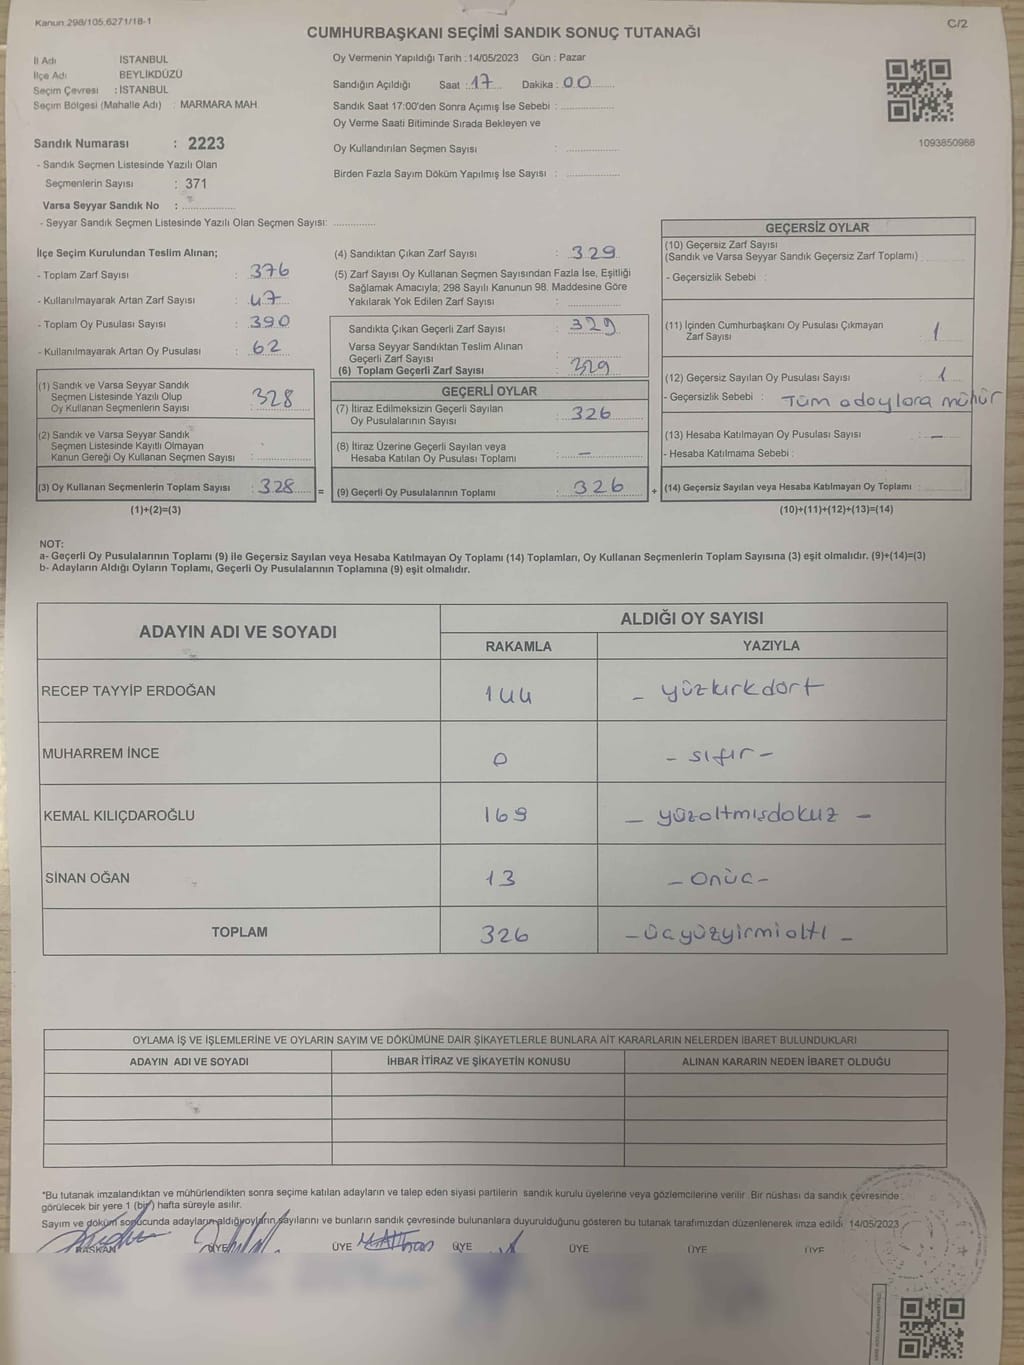 Kanun 298/105,6271/18-1
C/2
CUMHURBAŞKANI SEÇİMİ SANDIK SONUÇ TUTANAĞI
İl Adı İSTANBUL
İlçe Adı BEYLİKDÜZÜ
Seçim Çevresi : İSTANBUL
Seçim Bölgesi (Mahalle Adı) : MARMARA MAH.
Oy Vermenin Yapıldığı Tarih :14/05/2023 Gün : Pazar
Sandığın Açıldığı Saat : 17 Dakika : 00
Sandık Saat 17:00'den Sonra Açımış İse Sebebi :
Oy Verme Saati Bitiminde Sırada Bekleyen ve
Oy Kullandırılan Seçmen Sayısı :
Birden Fazla Sayım Döküm Yapılmış İse Sayısı :
1093850988
Sandık Numarası : 2223
- Sandık Seçmen Listesinde Yazılı Olan
Seçmenlerin Sayısı : 371
Varsa Seyyar Sandık No :
- Seyyar Sandık Seçmen Listesinde Yazılı Olan Seçmen Sayısı:
İlçe Seçim Kurulundan Teslim Alınan;
- Toplam Zarf Sayısı : 376
- Kullanılmayarak Artan Zarf Sayısı : 47
- Toplam Oy Pusulası Sayısı : 390
- Kullanılmayarak Artan Oy Pusulası : 62
(1) Sandık ve Varsa Seyyar Sandık
Seçmen Listesinde Yazılı Olup
Oy Kullanan Seçmenlerin Sayısı : 328
(2) Sandık ve Varsa Seyyar Sandık
Seçmen Listesinde Kayıtlı Olmayan
Kanun Gereği Oy Kullanan Seçmen Sayısı :
(3) Oy Kullanan Seçmenlerin Toplam Sayısı : 328 =
(1)+(2)=(3)
(4) Sandıktan Çıkan Zarf Sayısı : 329
(5) Zarf Sayısı Oy Kullanan Seçmen Sayısından Fazla İse, Eşitliği
Sağlamak Amacıyla; 298 Sayılı Kanunun 98. Maddesine Göre
Yakılarak Yok Edilen Zarf Sayısı :
Sandıkta Çıkan Geçerli Zarf Sayısı : 329
Varsa Seyyar Sandıktan Teslim Alınan
Geçerli Zarf Sayısı :
(6) Toplam Geçerli Zarf Sayısı : 329
GEÇERLİ OYLAR
(7) İtiraz Edilmeksizin Geçerli Sayılan
Oy Pusulalarının Sayısı : 326
(8) İtiraz Üzerine Geçerli Sayılan veya
Hesaba Katılan Oy Pusulası Toplamı : -
(9) Geçerli Oy Pusulalarının Toplamı : 326 +
GEÇERSİZ OYLAR
(10) Geçersiz Zarf Sayısı
(Sandık ve Varsa Seyyar Sandık Geçersiz Zarf Toplamı)
- Geçersizlik Sebebi :
(11) İçinden Cumhurbaşkanı Oy Pusulası Çıkmayan
Zarf Sayısı : 1
(12) Geçersiz Sayılan Oy Pusulası Sayısı : 1
- Geçersizlik Sebebi : Tüm adaylara mühür
(13) Hesaba Katılmayan Oy Pusulası Sayısı : -
- Hesaba Katılmama Sebebi :
(14) Geçersiz Sayılan veya Hesaba Katılmayan Oy Toplamı :
(10)+(11)+(12)+(13)=(14)
NOT:
a- Geçerli Oy Pusulalarının Toplamı (9) ile Geçersiz Sayılan veya Hesaba Katılmayan Oy Toplamı (14) Toplamları, Oy Kullanan Seçmenlerin Toplam Sayısına (3) eşit olmalıdır. (9)+(14)=(3)
b- Adayların Aldığı Oyların Toplamı, Geçerli Oy Pusulalarının Toplamına (9) eşit olmalıdır.
ADAYIN ADI VE SOYADI
ALDIĞI OY SAYISI
RAKAMLA YAZIYLA
RECEP TAYYİP ERDOĞAN 144 - yüzkırkdört
MUHARREM İNCE 0 - sıfır -
KEMAL KILIÇDAROĞLU 169 - yüzaltmışdokuz -
SİNAN OĞAN 13 - onüç -
TOPLAM 326 - üçyüzyirmialtı -
OYLAMA İŞ VE İŞLEMLERİNE VE OYLARIN SAYIM VE DÖKÜMÜNE DAİR ŞİKAYETLERLE BUNLARA AİT KARARLARIN NELERDEN İBARET BULUNDUKLARI
ADAYIN ADI VE SOYADI İHBAR İTİRAZ VE ŞİKAYETİN KONUSU ALINAN KARARIN NEDEN İBARET OLDUĞU
*Bu tutanak imzalandıktan ve mühürlendikten sonra seçime katılan adayların ve talep eden siyasi partilerin sandık kurulu üyelerine veya gözlemcilerine verilir. Bir nüshası da sandık çevresinde
görülecek bir yere 1 (bir) hafta süreyle asılır.
Sayım ve döküm sonucunda adayların aldığı oyların sayılarını ve bunların sandık çevresinde bulunanlara duyurulduğunu gösteren bu tutanak tarafımızdan düzenlenerek imza edildi. 14/05/2023
BAŞKAN ÜYE ÜYE ÜYE ÜYE ÜYE ÜYE